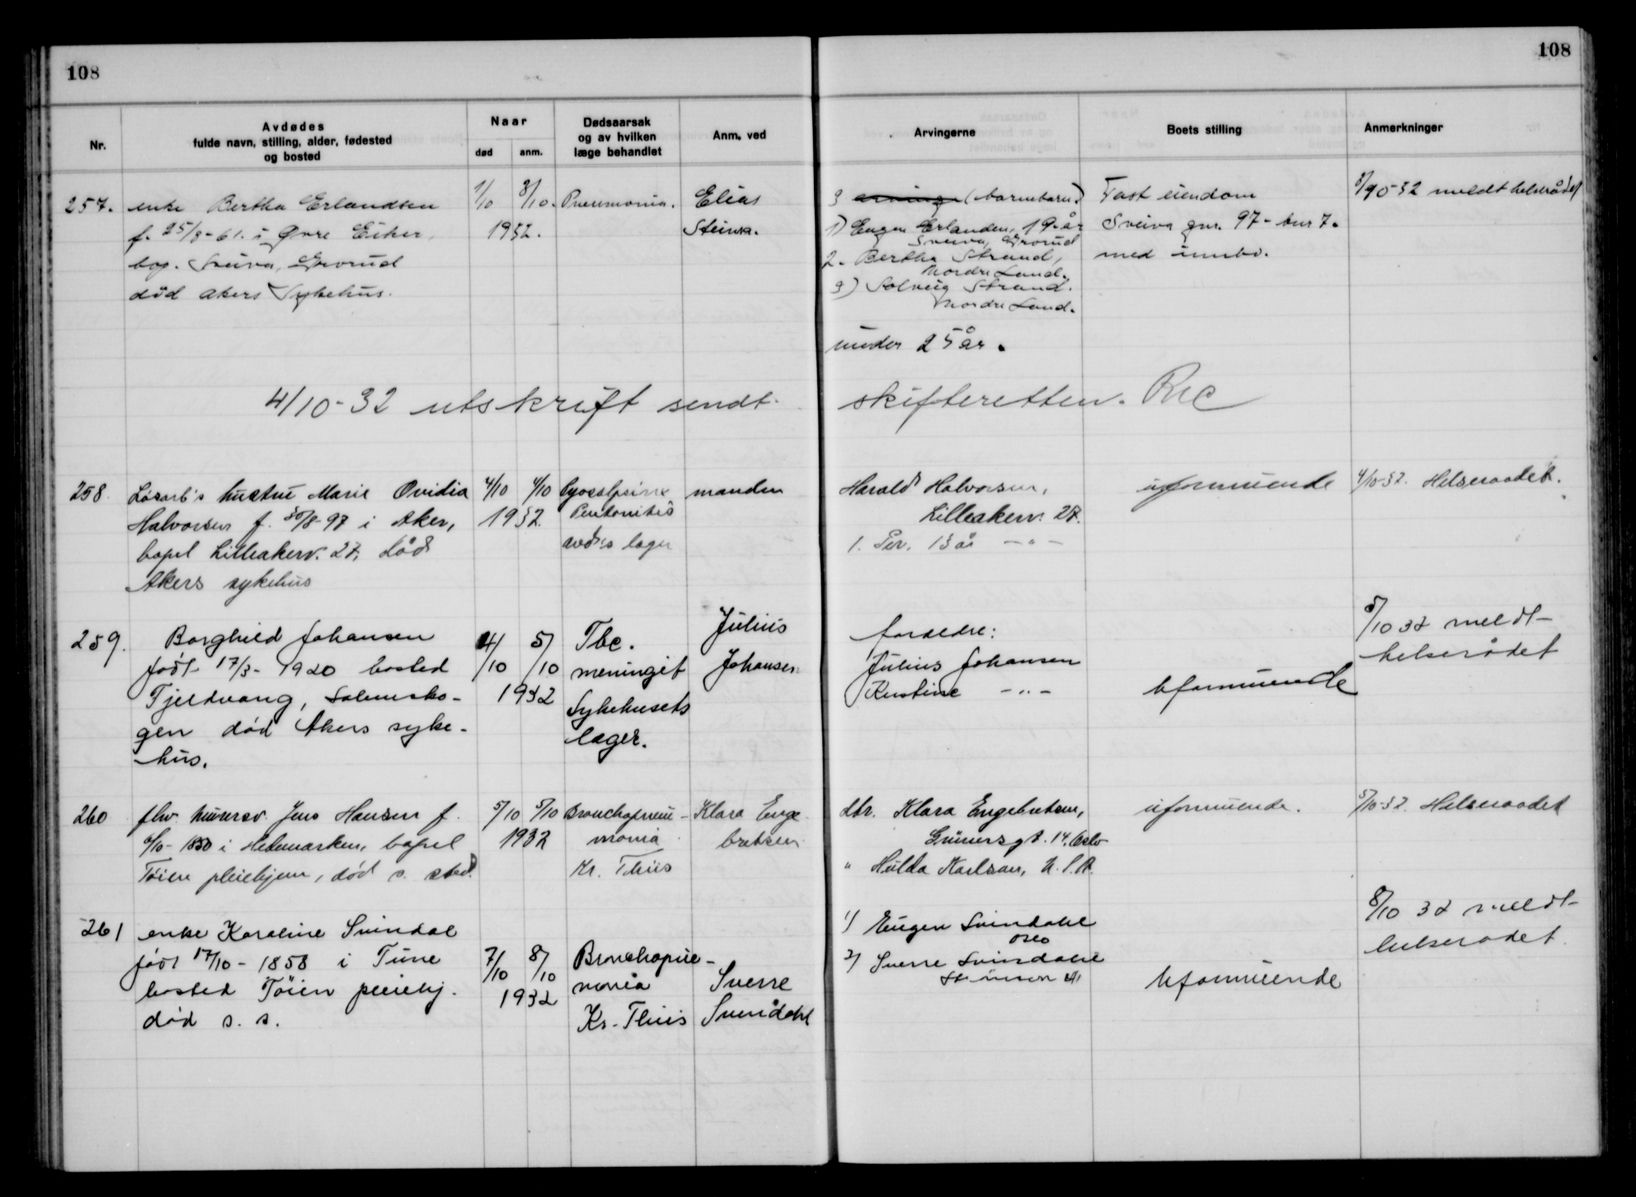 108
108
Nr.
Avdødes
fulde navn, stilling, alder, fødested
og bosted
Naar
død
anm.
Dødsaarsak
og av hvilken
læge behandlet
Anm. ved
Arvingerne
Boets stilling
Anmerkninger
257.
enke Bertha Erlandsen
f. 25/8-61. i Øvre Eiker,
bop. Sveiva, Grorud
død Akers Sykehus.
1/10
3/10.
1932.
Pneumonia.
Elias
3 (barnebarn)
1) Eugen Erlandsen, 19 år
Sveiva, Grorud
2. Bertha Strand,
Nordre Land.
3) Solveig Strand.
Nordre Land.
under 25 år.
Fast eiendom
Sveiva gnr. 97 - bnr 7.
med innbo.
meldt helserådet
4/10-32 utskrift sendt skifteretten.
258.
Løsarb's hustru Marie Ovidia
Halvorsen f. 30/8-97 i Aker,
bopel Lilleakerv. 27, død
Akers sykehus
4/10
4/10
1932
Pyosalpinx
Peritonitis
manden
Harald Halvorsen,
Lilleakerv. 27.
1. Per. 13 år -"-
uformuende
4/10-32. Helseraadet.
259.
Borghild Johansen
født 17/3-1920 bosted
Fjeldvang, Solemsko-
gen død Akers syke-
hus.
4/10
5/10
1932
Tbc.
meningit
Sykehusets
læger.
Julius
Johansen
foreldre:
Julius Johansen
Kristine -"-
Uformuende
5/10 32 meldt
helserådet
260
fhv. murersv. Jens Hansen f.
i Hedemarken, bopel
Tøien pleiehjem, død s. sted.
5/10
5/10
1932
Bronchopneu-
monia
Kr. Thiis
Klara Enge
bretsen
dtr. Klara Engebretsen,
Grünersgt. 14, Oslo
" Hulda Karlson, U.S.A.
uformuende.
5/10-32. Helseraadet
261
enke Karoline Svindal
født 17/10-1858 i Tune
bosted Tøien pleiehj.
død s. s.
7/10
8/10
1932
Bronchopne-
monia
Kr. Thiis
Sverre
Svindahl
1) Eugen Svindahl
Oslo
2) Sverre Svindahl
Uformuende
8/10 32 meldt
helserådet.